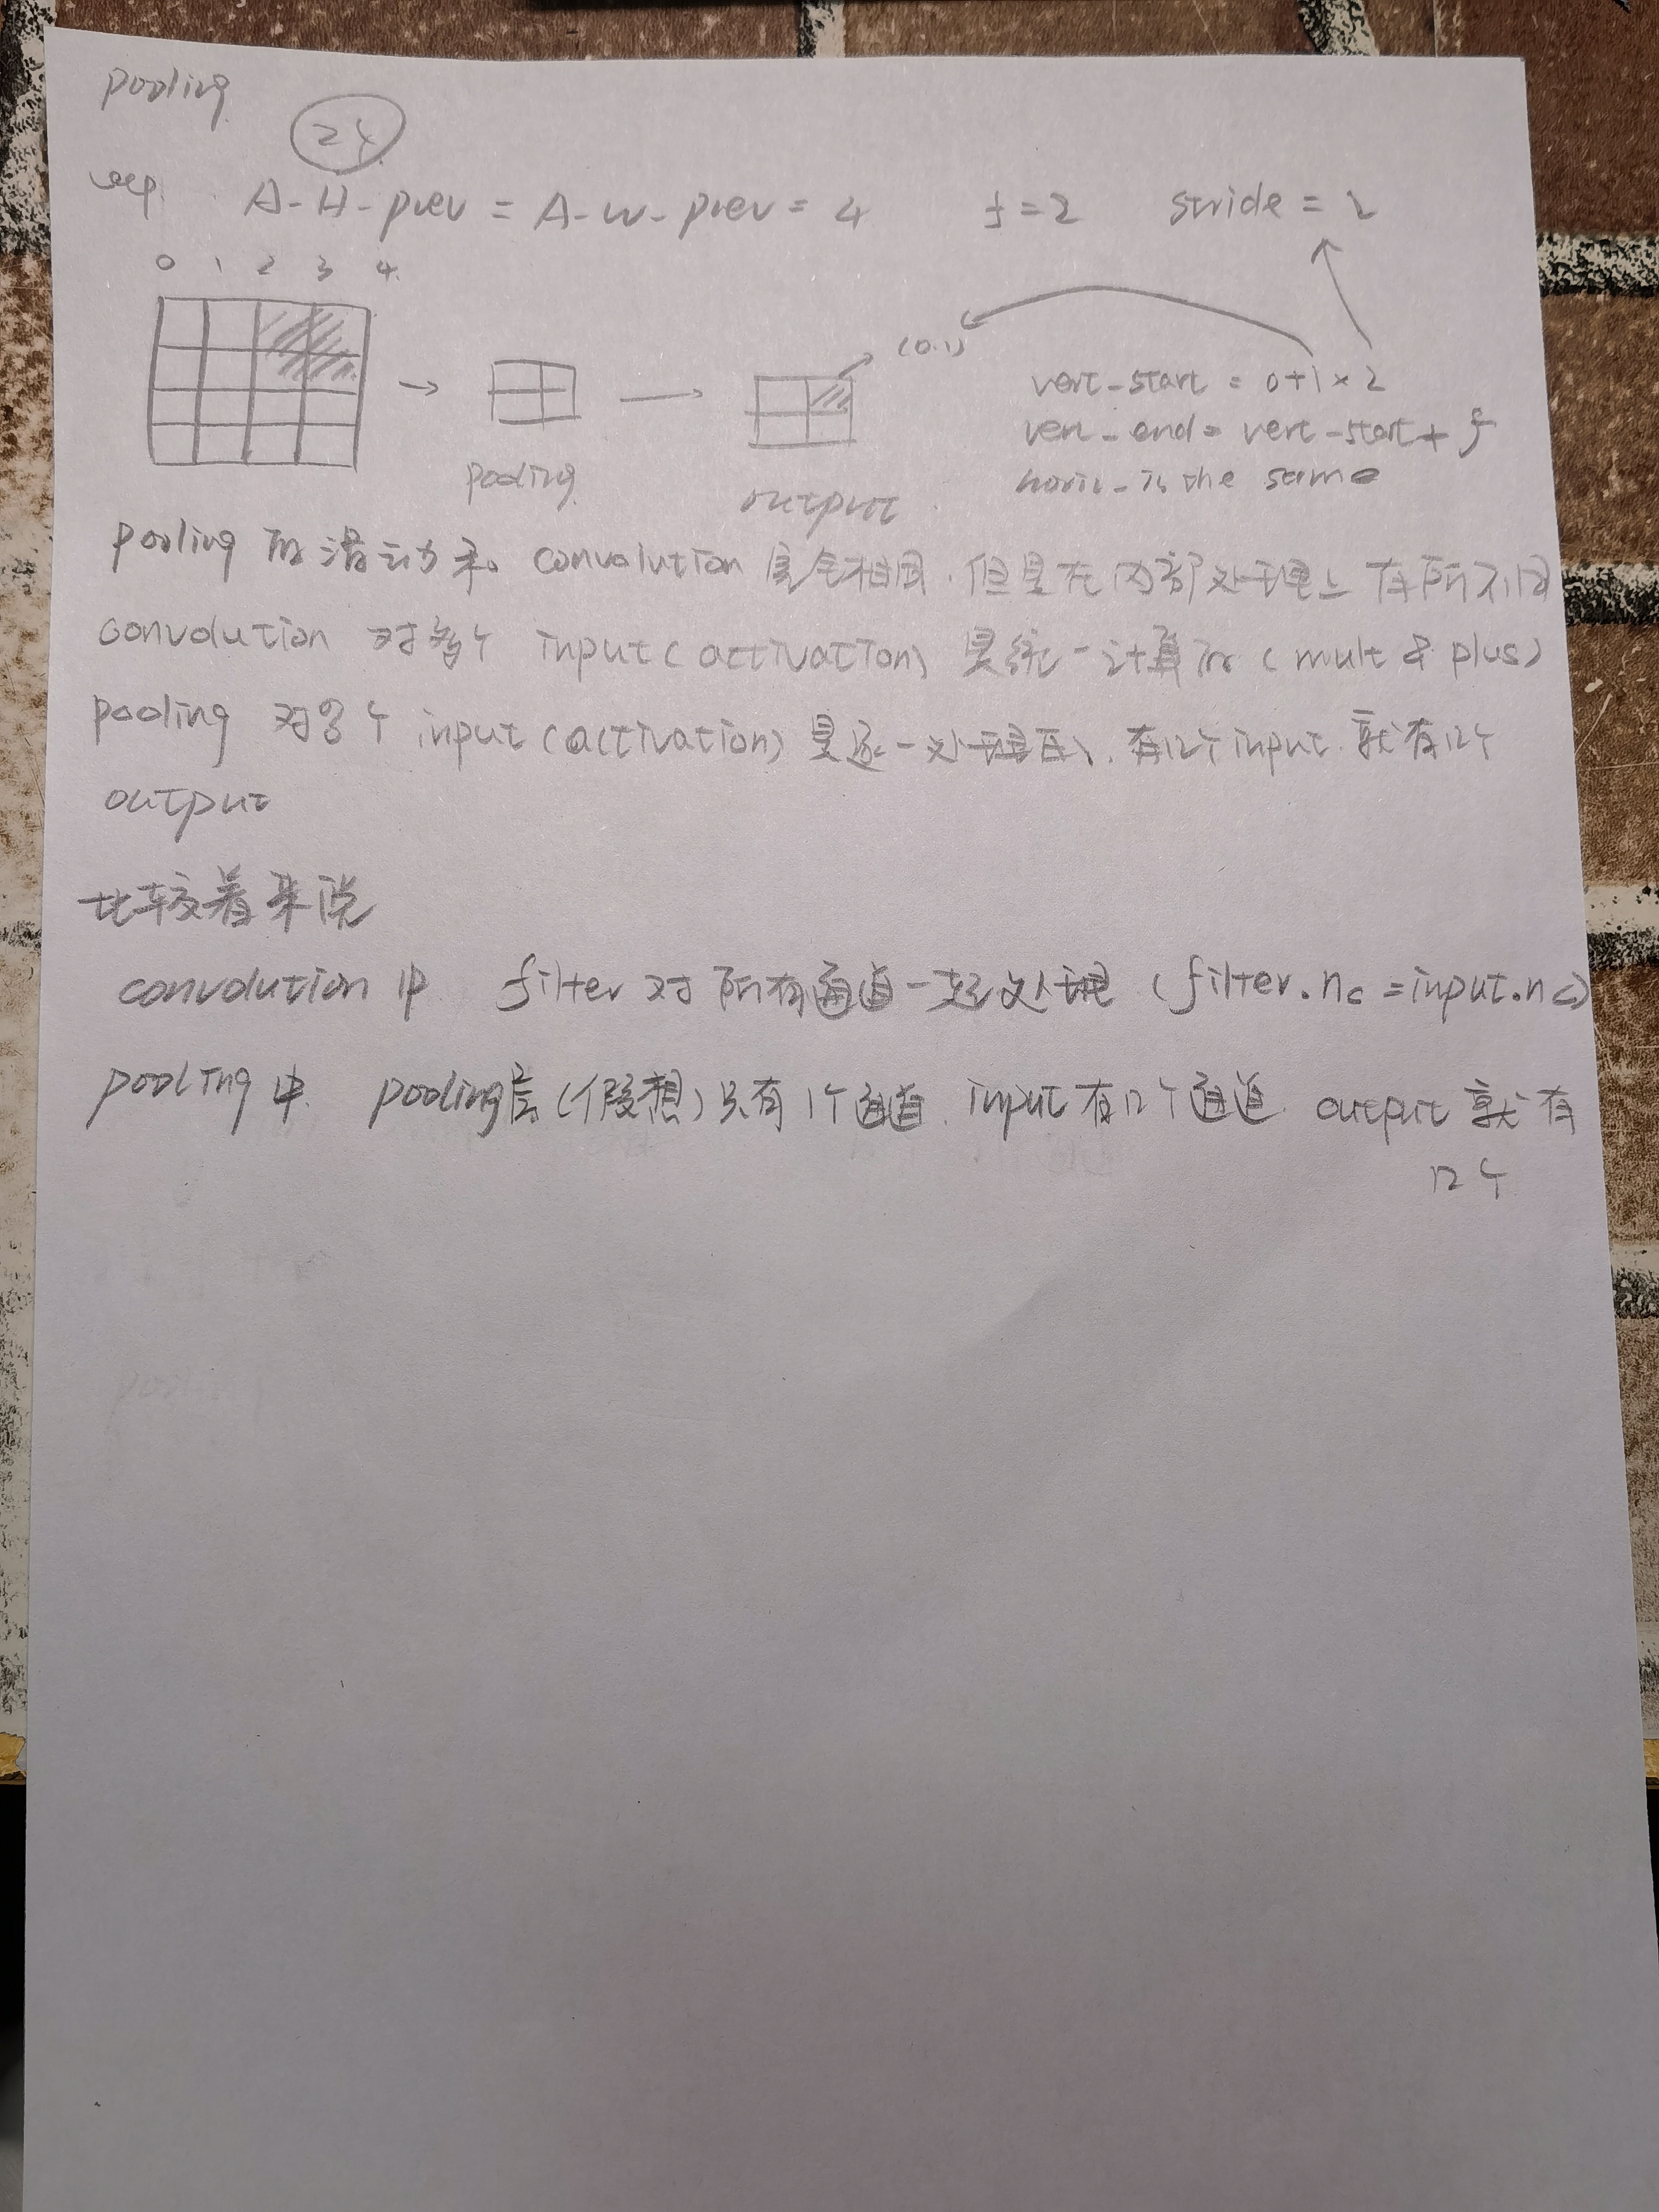 pooling
24
A-H-prev = A-W-prev = 4 f=2 stride = 2
0 1 2 3 4
(0.1)
vert-start = 0+1×2
vert-end = vert-start + f
horiz-is the same
pooling
output
pooling 的滑动和 convolution 完全相同.但是在内部处理上有所不同
convolution 对多个 input(activation) 是统一计算的 (mult & plus)
pooling 对多个 input(activation) 是逐一处理的、有12个input.就有12个
output
比较着来说
convolution 中 filter 对所有通道一起处理 (filter.nc =input.nc)
pooling 中. pooling层(假想)只有1个通道. input 有12个通道. output 就有
12个